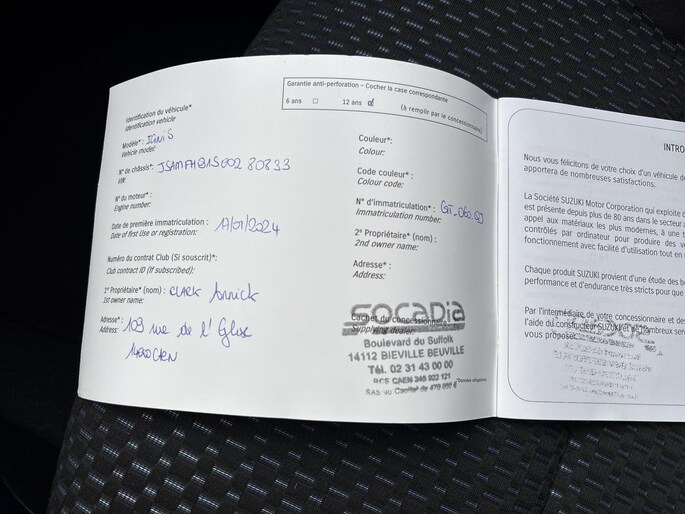 Garantie anti-perforation – Cocher la case correspondante
6 ans □ 12 ans (à remplir par le concessionnaire)
Identification du véhicule*
Identification vehicle
Modèle*: IGNIS
Vehicle model:
N° de châssis*:
VIN:
N° du moteur*:
Engine number:
Date de première immatriculation: 17/01/2024
Date of first Use or registration:
Numéro du contrat Club (Si souscrit)*:
Club contract ID (If subscribed):
1er Propriétaire* (nom): CLARK Annick
1st owner name:
Adresse*: 103 rue de l'
Address:
CAEN
Couleur*:
Colour:
Code couleur*:
Colour code:
N° d'immatriculation*:
Immatriculation number:
2e Propriétaire* (nom):
2nd owner name:
Adresse*:
Address:
socadia
Cachet du concessionnaire
Supplying dealer:
Boulevard du Suffolk
14112 BIEVILLE BEUVILLE
Tél. 02 31 43 00 00
*Données obligatoires
INTRO
Nous vous félicitons de votre choix d'un véhicule de
apportera de nombreuses satisfactions.
La Société SUZUKI Motor Corporation qui exploite d
est présente depuis plus de 80 ans dans le secteur a
appel aux matériaux les plus modernes, à une t
contrôlés par ordinateur pour produire des v
fonctionnement avec facilité d'utilisation tout en
Chaque produit SUZUKI provient d'une étude des be
performance et d'endurance très stricts pour que
Par l'intermédiaire de votre concessionnaire et des
l'aide du constructeur SUZUKI et de nombreux serv
vous proposer